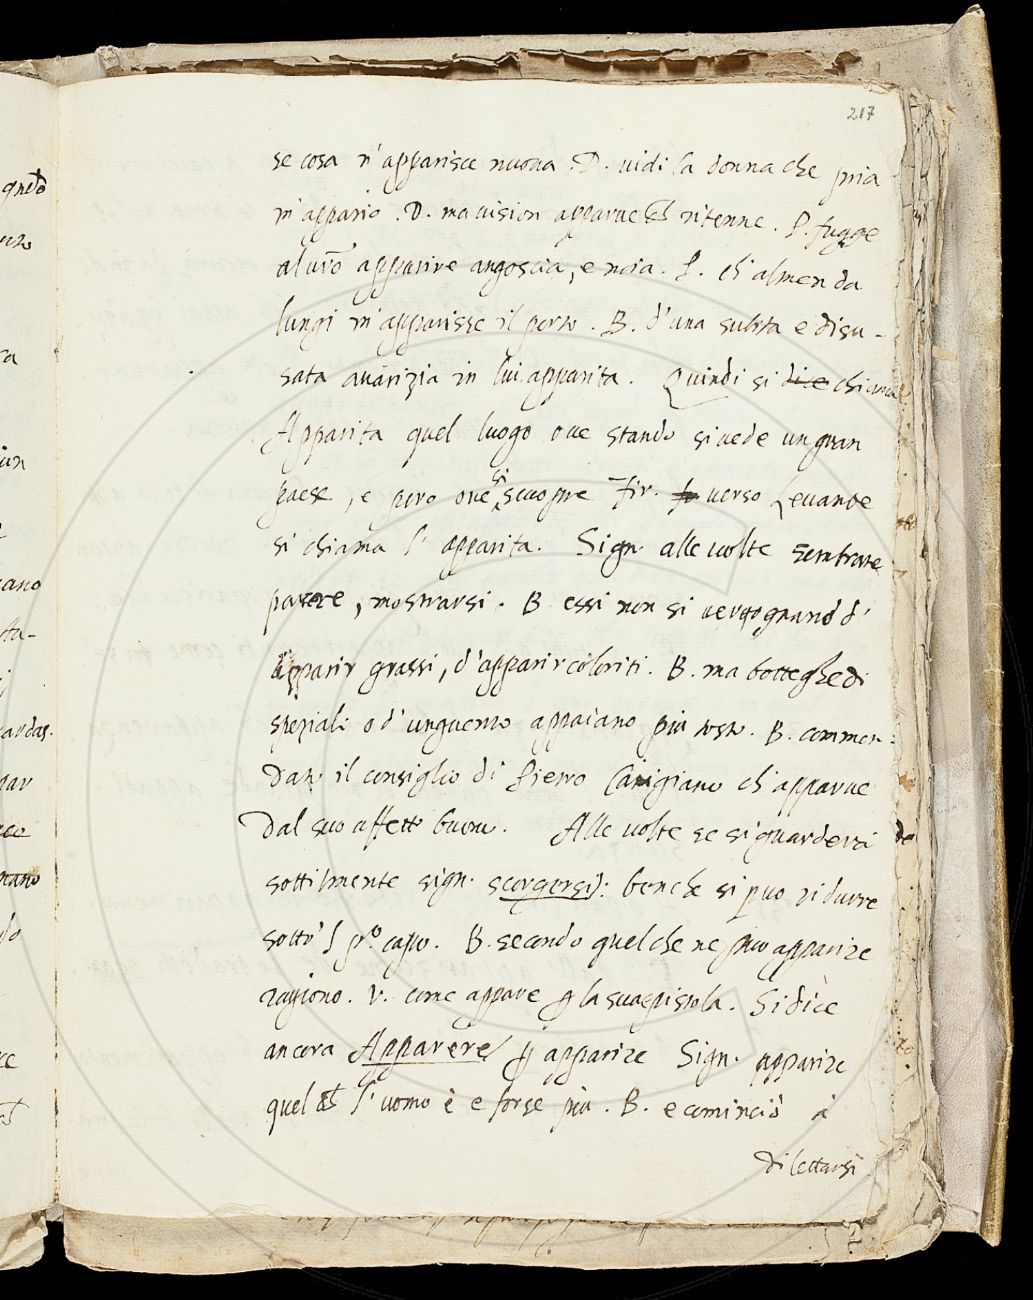 217
se cosa n'apparisce nuova. D. vidi la donna che pria
m'appario. D. ma vision apparve ch̃ ritenne. P. fugge
al vr̃o apparire angoscia, e noia. P. ch'almen da
lungi m'apparisse il porto. B. d'una subita e disu-
sata avarizia in lui apparita. Quindi si dice chiama
Apparita quel luogo ove stando si vede un gran
paese, e pero ove si scuopre Fir. verso Levante
si chiama l'apparita. Sign. alle volte sembrare
parere, mostrarsi. B. essi non si vergognano d'
apparir grassi, d'apparir coloriti. B. ma botteghe di
speziali o d'unguento appaiano più tosto. B. commen-
dato il consiglio di Pietro Canigiano ch'apparve
dal suo affetto buono. Alle volte se si guarderà
sottilmente sign. scorgersi: benche si puo ridurre
sotto'l pro. capo. B. secondo quel che ne puo apparire
ragiono. V. come appare p la sua epistola. Si dice
ancora Apparere p apparire Sign. apparire
quel ch̃ l'uomo è e forse più. B. e cominciò à
dilettarsi